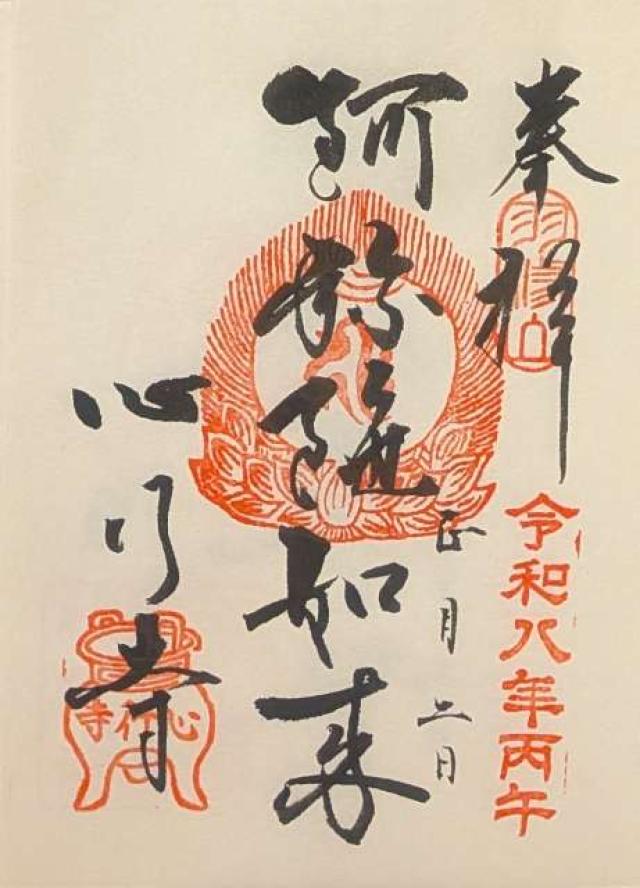 奉拝
令和八年丙午
正月 日
阿弥陀如来
心行寺
心行寺